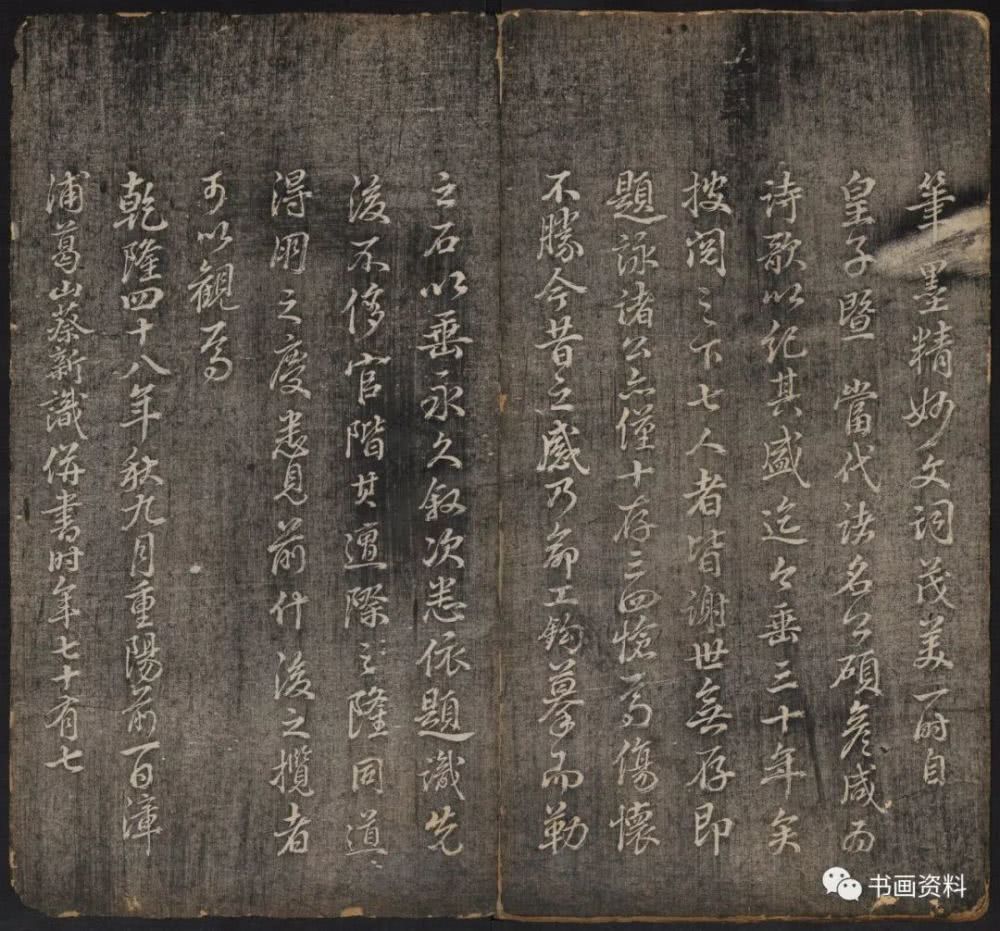 筆墨精妙文词茂美一时自
皇子暨 當代诸名公碩彦咸为
诗歌以纪其盛迄今垂三十年矣
披阅之下七人者皆谢世無存即
題詠诸公亦僅十存三四愴焉傷懷
不勝今昔之感乃命工鉤摹而勒
之石以垂永久叙次悉依題識先
後不侈官階其遭際之隆同道
得朋之慶悉見前什後之攬者
可以觀焉
乾隆四十八年秋九月重陽前一日漳
浦葛山蔡新識併書时年七十有七
书画资料